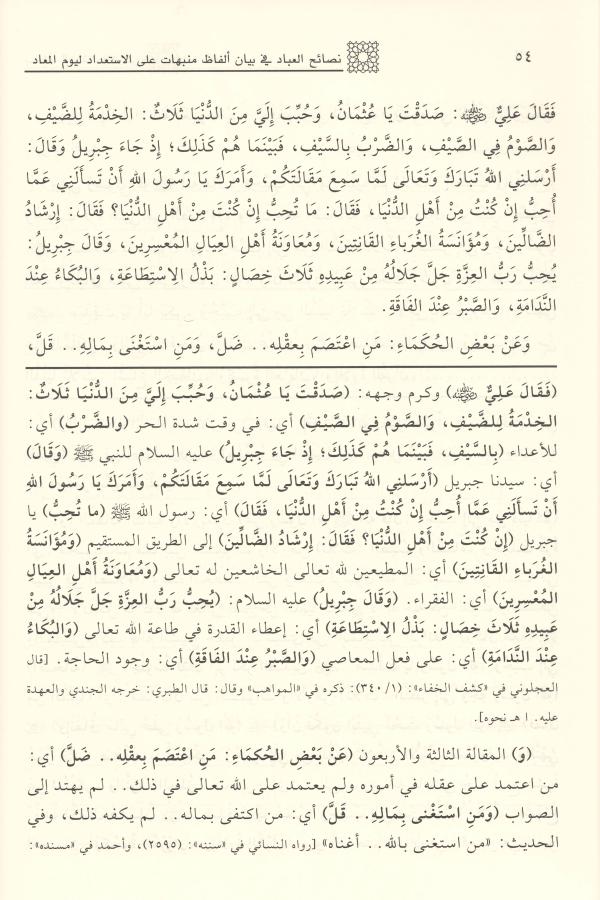 ٥٤
نصائح العباد في بيان ألفاظ منبهات على الاستعداد ليوم المعاد
فَقَالَ عَلِيٌّ رضي الله عنه: صَدَقْتَ يَا عُثْمَانُ، وَحُبِّبَ إِلَيَّ مِنَ الدُّنْيَا ثَلَاثٌ: الخِدْمَةُ لِلضَّيْفِ،
وَالصَّوْمُ فِي الصَّيْفِ، وَالضَّرْبُ بِالسَّيْفِ، فَبَيْنَمَا هُمْ كَذَلِكَ؛ إِذْ جَاءَ جِبْرِيلُ وَقَالَ:
أَرْسَلَنِي اللهُ تَبَارَكَ وَتَعَالَى لَمَّا سَمِعَ مَقَالَتَكُمْ، وَأَمَرَكَ يَا رَسُولَ اللهِ أَنْ تَسأَلَنِي عَمَّا
أُحِبُّ إِنْ كُنْتُ مِنْ أَهْلِ الدُّنْيَا، فَقَالَ: مَا تُحِبُّ إِنْ كُنْتَ مِنْ أَهْلِ الدُّنْيَا؟ فَقَالَ: إِرْشَادُ
الضَّالِّينَ، وَمُؤَانَسَةُ الغُرَبَاءِ القَانِتِينَ، وَمُعَاوَنَةُ أَهْلِ العِيَالِ المُعْسِرِينَ، وَقَالَ جِبْرِيلُ:
يُحِبُّ رَبُّ العِزَّةِ جَلَّ جَلَالُهُ مِنْ عَبِيدِهِ ثَلَاثَ خِصَالٍ: بَذْلُ الِاسْتِطَاعَةِ، وَالبُكَاءُ عِنْدَ
النَّدَامَةِ، وَالصَّبْرُ عِنْدَ الفَاقَةِ.
وَعَنْ بَعْضِ الحُكَمَاءِ: مَنِ اعْتَصَمَ بِعقْلِه.. ضَلَّ، وَمَنِ اسْتَغْنَى بِمَالِهِ.. قَلَّ،
(فَقَالَ عَلِيٌّ رضي الله عنه) وكرم وجهه: (صَدَقْتَ يَا عُثْمَانُ، وَحُبِّبَ إِلَيَّ مِنَ الدُّنْيَا ثَلَاثٌ:
الخِدْمَةُ لِلضَّيْفِ، وَالصَّوْمُ فِي الصَّيْفِ) أي: في وقت شدة الحر (والضَّرْبُ) أي:
للأعداء (بِالسَّيْفِ، فَبَيْنَمَا هُمْ كَذَلِكَ؛ إِذْ جَاءَ جِبْرِيلُ) عليه السلام للنبي ﷺ (وَقَالَ)
أي: سيدنا جبريل (أَرْسَلَنِي اللهُ تَبَارَكَ وَتَعَالَى لَمَّا سَمِعَ مَقَالَتَكُمْ، وَأَمَرَكَ يَا رَسُولَ اللهِ
أَنْ تَسأَلَنِي عَمَّا أُحِبُّ إِنْ كُنْتُ مِنْ أَهْلِ الدُّنْيَا، فَقَالَ) أي: رسول الله ﷺ (ما تُحِبُّ) يا
جبريل (إِنْ كُنْتَ مِنْ أَهْلِ الدُّنْيَا؟ فَقَالَ: إِرْشَادُ الضَّالِّينَ) إلى الطريق المستقيم (وَمُؤَانَسَةُ
الغُرَبَاءِ القَانِتِينَ) أي: المطيعين لله تعالى الخاشعين له تعالى (وَمُعَاوَنَةُ أَهْلِ العِيَالِ
المُعْسِرِينَ) أي: الفقراء. (وَقَالَ جِبْرِيلُ) عليه السلام: (يُحِبُّ رَبُّ العِزَّةِ جَلَّ جَلَالُهُ مِنْ
عَبِيدِهِ ثَلَاثَ خِصَالٍ: بَذْلُ الِاسْتِطَاعَةِ) أي: إعطاء القدرة في طاعة الله تعالى (وَالبُكَاءُ
عِنْدَ النَّدَامَةِ) أي: على فعل المعاصي (وَالصَّبْرُ عِنْدَ الفَاقَةِ) أي: وجود الحاجة. [قال
العجلوني في «كشف الخفاء»: (١/ ٣٤٠): ذكره في «المواهب» وقال: قال الطبري: خرجه الجندي والعهدة
عليه. اهـ نحوه].
(وَ) المقالة الثالثة والأربعون (عَنْ بَعْضِ الحُكَمَاءِ: مَنِ اعْتَصَمَ بِعَقْلِهِ.. ضَلَّ) أي:
من اعتمد على عقله في أموره ولم يعتمد على الله تعالى في ذلك.. لم يهتد إلى
الصواب (وَمَنِ اسْتَغْنى بِمَالِهِ.. قَلَّ) أي: من اكتفى بماله.. لم يكفه ذلك، وفي
الحديث: «من استغنى بالله.. أغناه» [رواه النسائي في «سننه»: (٢٥٩٥)، وأحمد في «مسنده»: